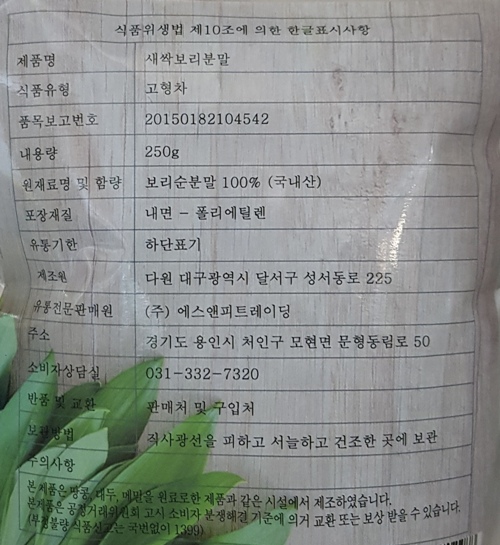 식품위생법 제10조에 의한 한글표시사항
제품명 새싹보리분말
식품유형 고형차
품목보고번호 20150182104542
내용량 250g
원재료명 및 함량 보리순분말 100% (국내산)
포장재질 내면 - 폴리에틸렌
유통기한 하단표기
제조원 다원 대구광역시 달서구 성서동로 225
유통전문판매원 (주) 에스앤피트레이딩
주소 경기도 용인시 처인구 모현면 문형동림로 50
소비자상담실 031-332-7320
반품 및 교환 판매처 및 구입처
보관방법 직사광선을 피하고 서늘하고 건조한 곳에 보관
주의사항
본제품은 땅콩, 대두, 메밀을 원료로한 제품과 같은 시설에서 제조하였습니다.
본제품은 공정거래위원회 고시 소비자 분쟁해결 기준에 의거 교환 또는 보상 받을 수 있습니다.
(부정불량 식품신고는 국번없이 1399)